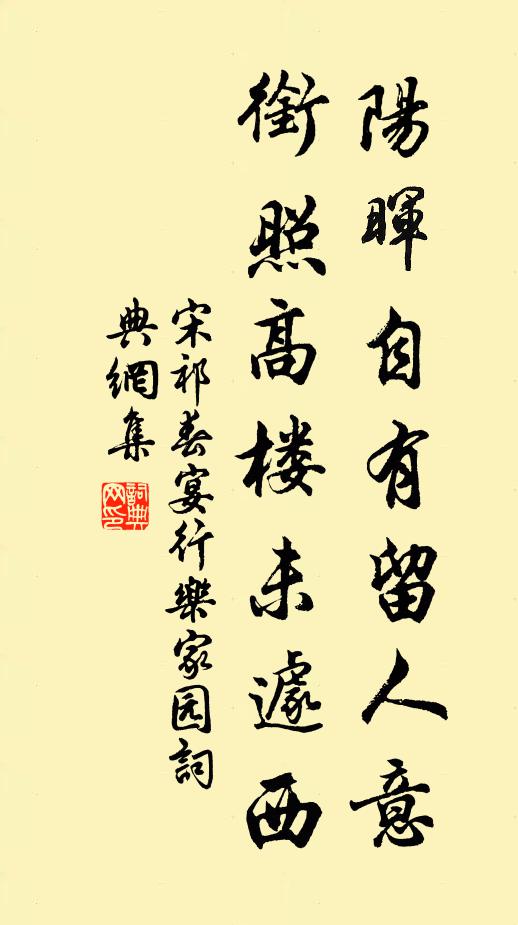 陽暉自有留人意
銜照高楼未遽西
宋祁春宴行樂家园詞
典網集
詞典
网印